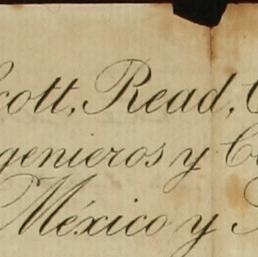 cott, Read, C
genieros y C
México y